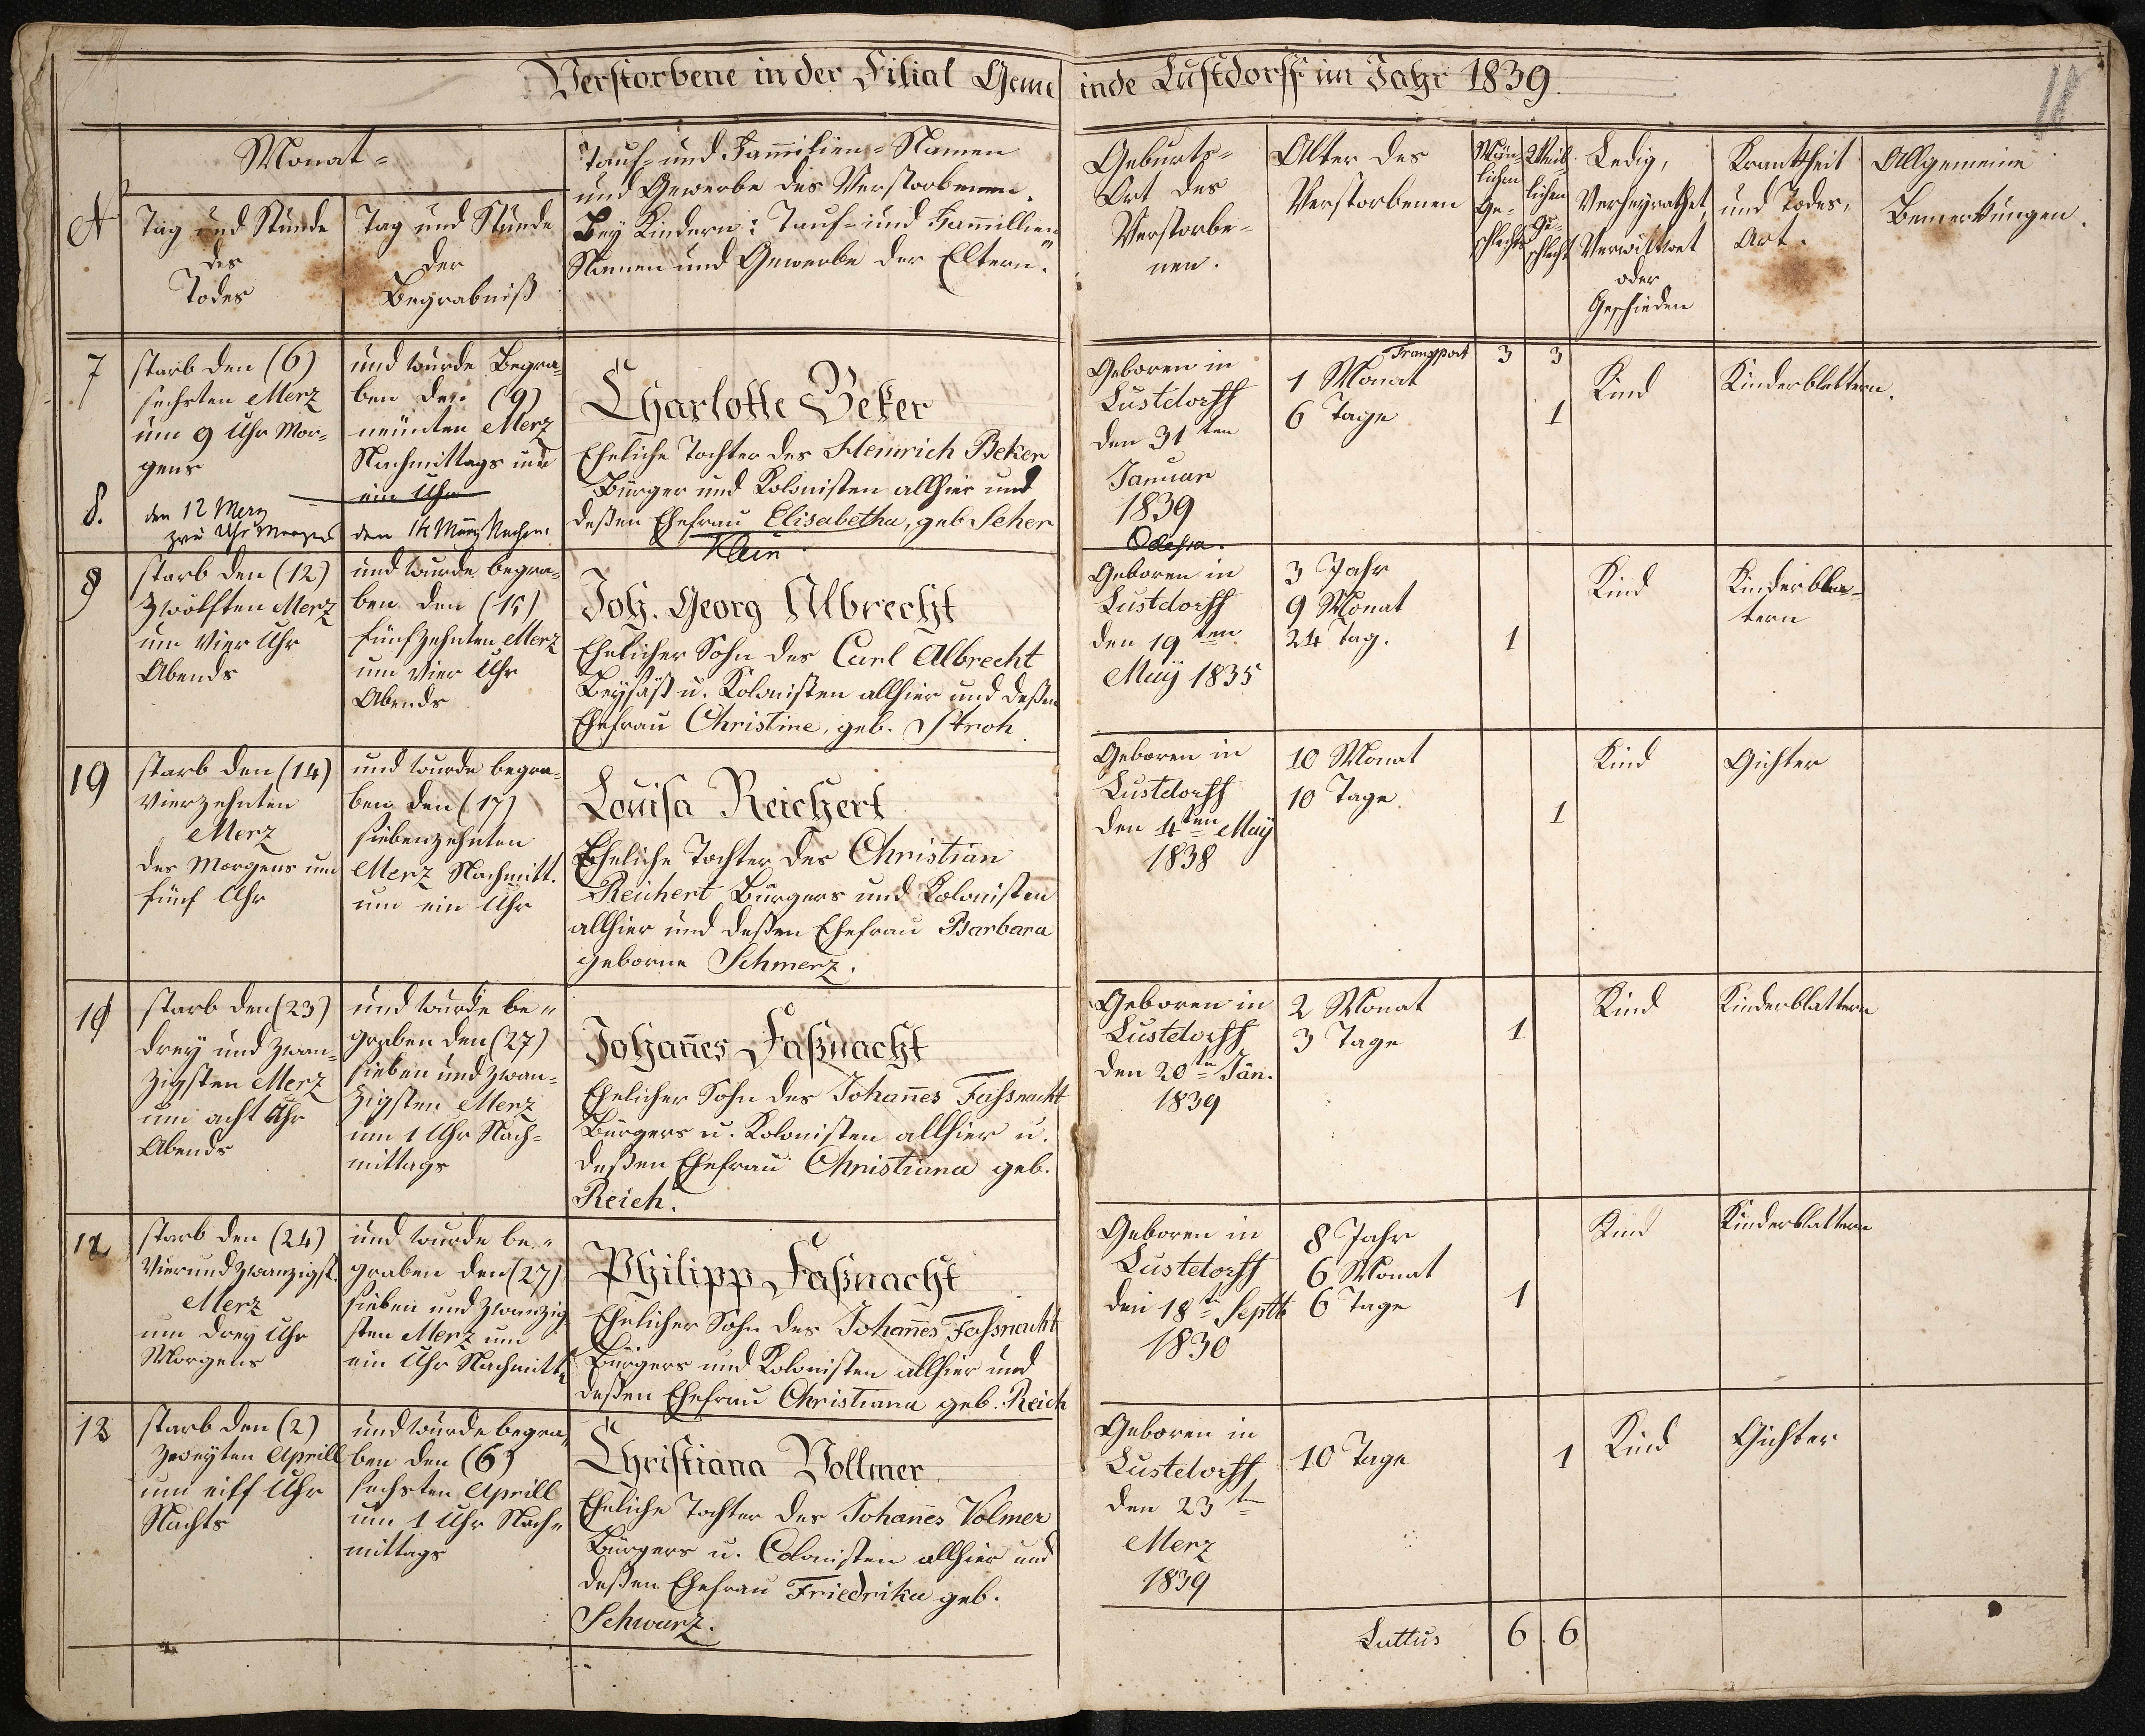 Verstorbene in der Filial Gemeinde Lustdorff im Jahr 1839.
11
№
Monat=
Tag und Stunde
des
Todes
Tag und Stunde
der
Begrabniß
Tauf= und Fam̄ilien=Namen
und Gewerbe des Verstorbenen.
Bey Kindern: Tauf= und Fam̄illien
Namen und Gewerbe der Eltern.
Geburts=
Ort des
Verstorbe=
nen.
Alter des
Verstorbenen
Män=
lichen
Ge=
schlechts
Weib=
lichen
Ge=
schlecht
Ledig,
Verheyrathet,
Verwittwet
oder
Geschieden
Krankheit
und Todes,
Art.
Allgemeine
Bemerkungen.
7
starb den (6)
sechsten Merz
um 9 Uhr Mor=
gens
und wurde Begra=
ben den (9)
neunten Merz
Nachmittags um
ein Uhr
Charlotte Beker
Eheliche Tochter des Heinrich Beker
Bürger und Kolonisten allhier und
deßen Ehefrau Elisabetha, geb Seher
Geboren in
Lustdorff
den 31ten
Januar
1839
Transport 3 3
1 Monat
6 Tage
1
Kind
Kinderblattern.
8.
den 12 Merz
Uhr Morgens
den 14 März Nachm.
Klein
Odessa.
9
starb den (12)
zwölften Merz
um Vier Uhr
Abends
und wurde begra=
ben den (15)
fünfzehnten Merz
um Vier Uhr
Abends
Joh. Georg Albrecht
Ehelicher Sohn des Carl Albrecht
Beysäß u. Kolonisten allhier und deßen
Ehefrau Christine, geb. Stroh
Geboren in
Lustdorff
den 19ten
May 1835
3 Jahr
9 Monat
24 Tag.
1
Kind
Kinderbla=
tern
10
starb den (14)
Vierzehnten
Merz
des Morgens um
fünf Uhr
und wurde begra=
ben den (17)
siebenzehnten
Merz Nachmitt.
um ein Uhr
Louisa Reichert
Eheliche Tochter des Christian
Reichert Bürgers und Kolonisten
allhier und deßen Ehefrau Barbara
geborne Schmerz.
Geboren in
Lustdorff
den 4ten May
1838
10 Monat
10 Tage
1
Kind
Gichter
11
starb den (23)
drey und zwan=
zigsten Merz
um acht Uhr
Abends
und wurde be=
graben den (27)
sieben und zwan=
zigsten Merz
um 1 Uhr Nach=
mittags
Johan̄es Faßnacht
Ehelicher Sohn des Johan̄es Fassnacht
Bürgers u. Kolonisten allhier u.
deßen Ehefrau Christiana geb.
Reich.
Geboren in
Lustdorff
den 20ten Jän.
1839
2 Monat
3 Tage
1
Kind
Kinderblattern
12
starb den (24)
Vierundzwanzigst.
Merz
um drey Uhr
Morgens
und wurde be=
graben den (27)
sieben und zwanzig
sten Merz um
ein Uhr Nachmitt.
Philipp Faßnacht
Ehelicher Sohn des Johan̄es Fassnacht
Bürgers und Kolonisten allhier und
deßen Ehefrau Christiana geb. Reich
Geboren in
Lustdorff
den 18tn Septb
1830
8 Jahr
6 Monat
6 Tage
1
Kind
Kinderblattern
13
starb den (2)
zweyten Aprill
um eilf Uhr
Nachts
und wurde begra=
ben den (6)
sechsten Aprill
um 1 Uhr Nach=
mittags
Christiana Vollmer
Eheliche Tochter des Johan̄es Volmer
Bürgers u. Colonisten allhier und
deßen Ehefrau Friedrika geb.
Schwarz.
Geboren in
Lustdorff
den 23tn
Merz
1839
10 Tage
1
Kind
Gichter
Lattus 6 6